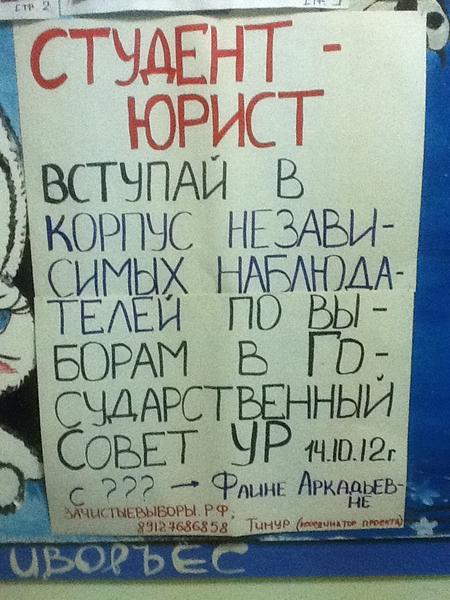 СТР 2
СТУДЕНТ -
ЮРИСТ
ВСТУПАЙ В
КОРПУС НЕЗАВИ-
СИМЫХ НАБЛЮДА-
ТЕЛЕЙ ПО ВЫ-
БОРАМ В ГО-
СУДАРСТВЕННЫЙ
СОВЕТ УР 14.10.12г.
С ??? → ФАИНЕ АРКАДЬЕВ-
НЕ
ЗАЧИСТЫЕВЫБОРЫ.РФ,
89127686858 ТИМУР (КООРДИНАТОР ПРОЕКТА)
ИВОРЪЁС